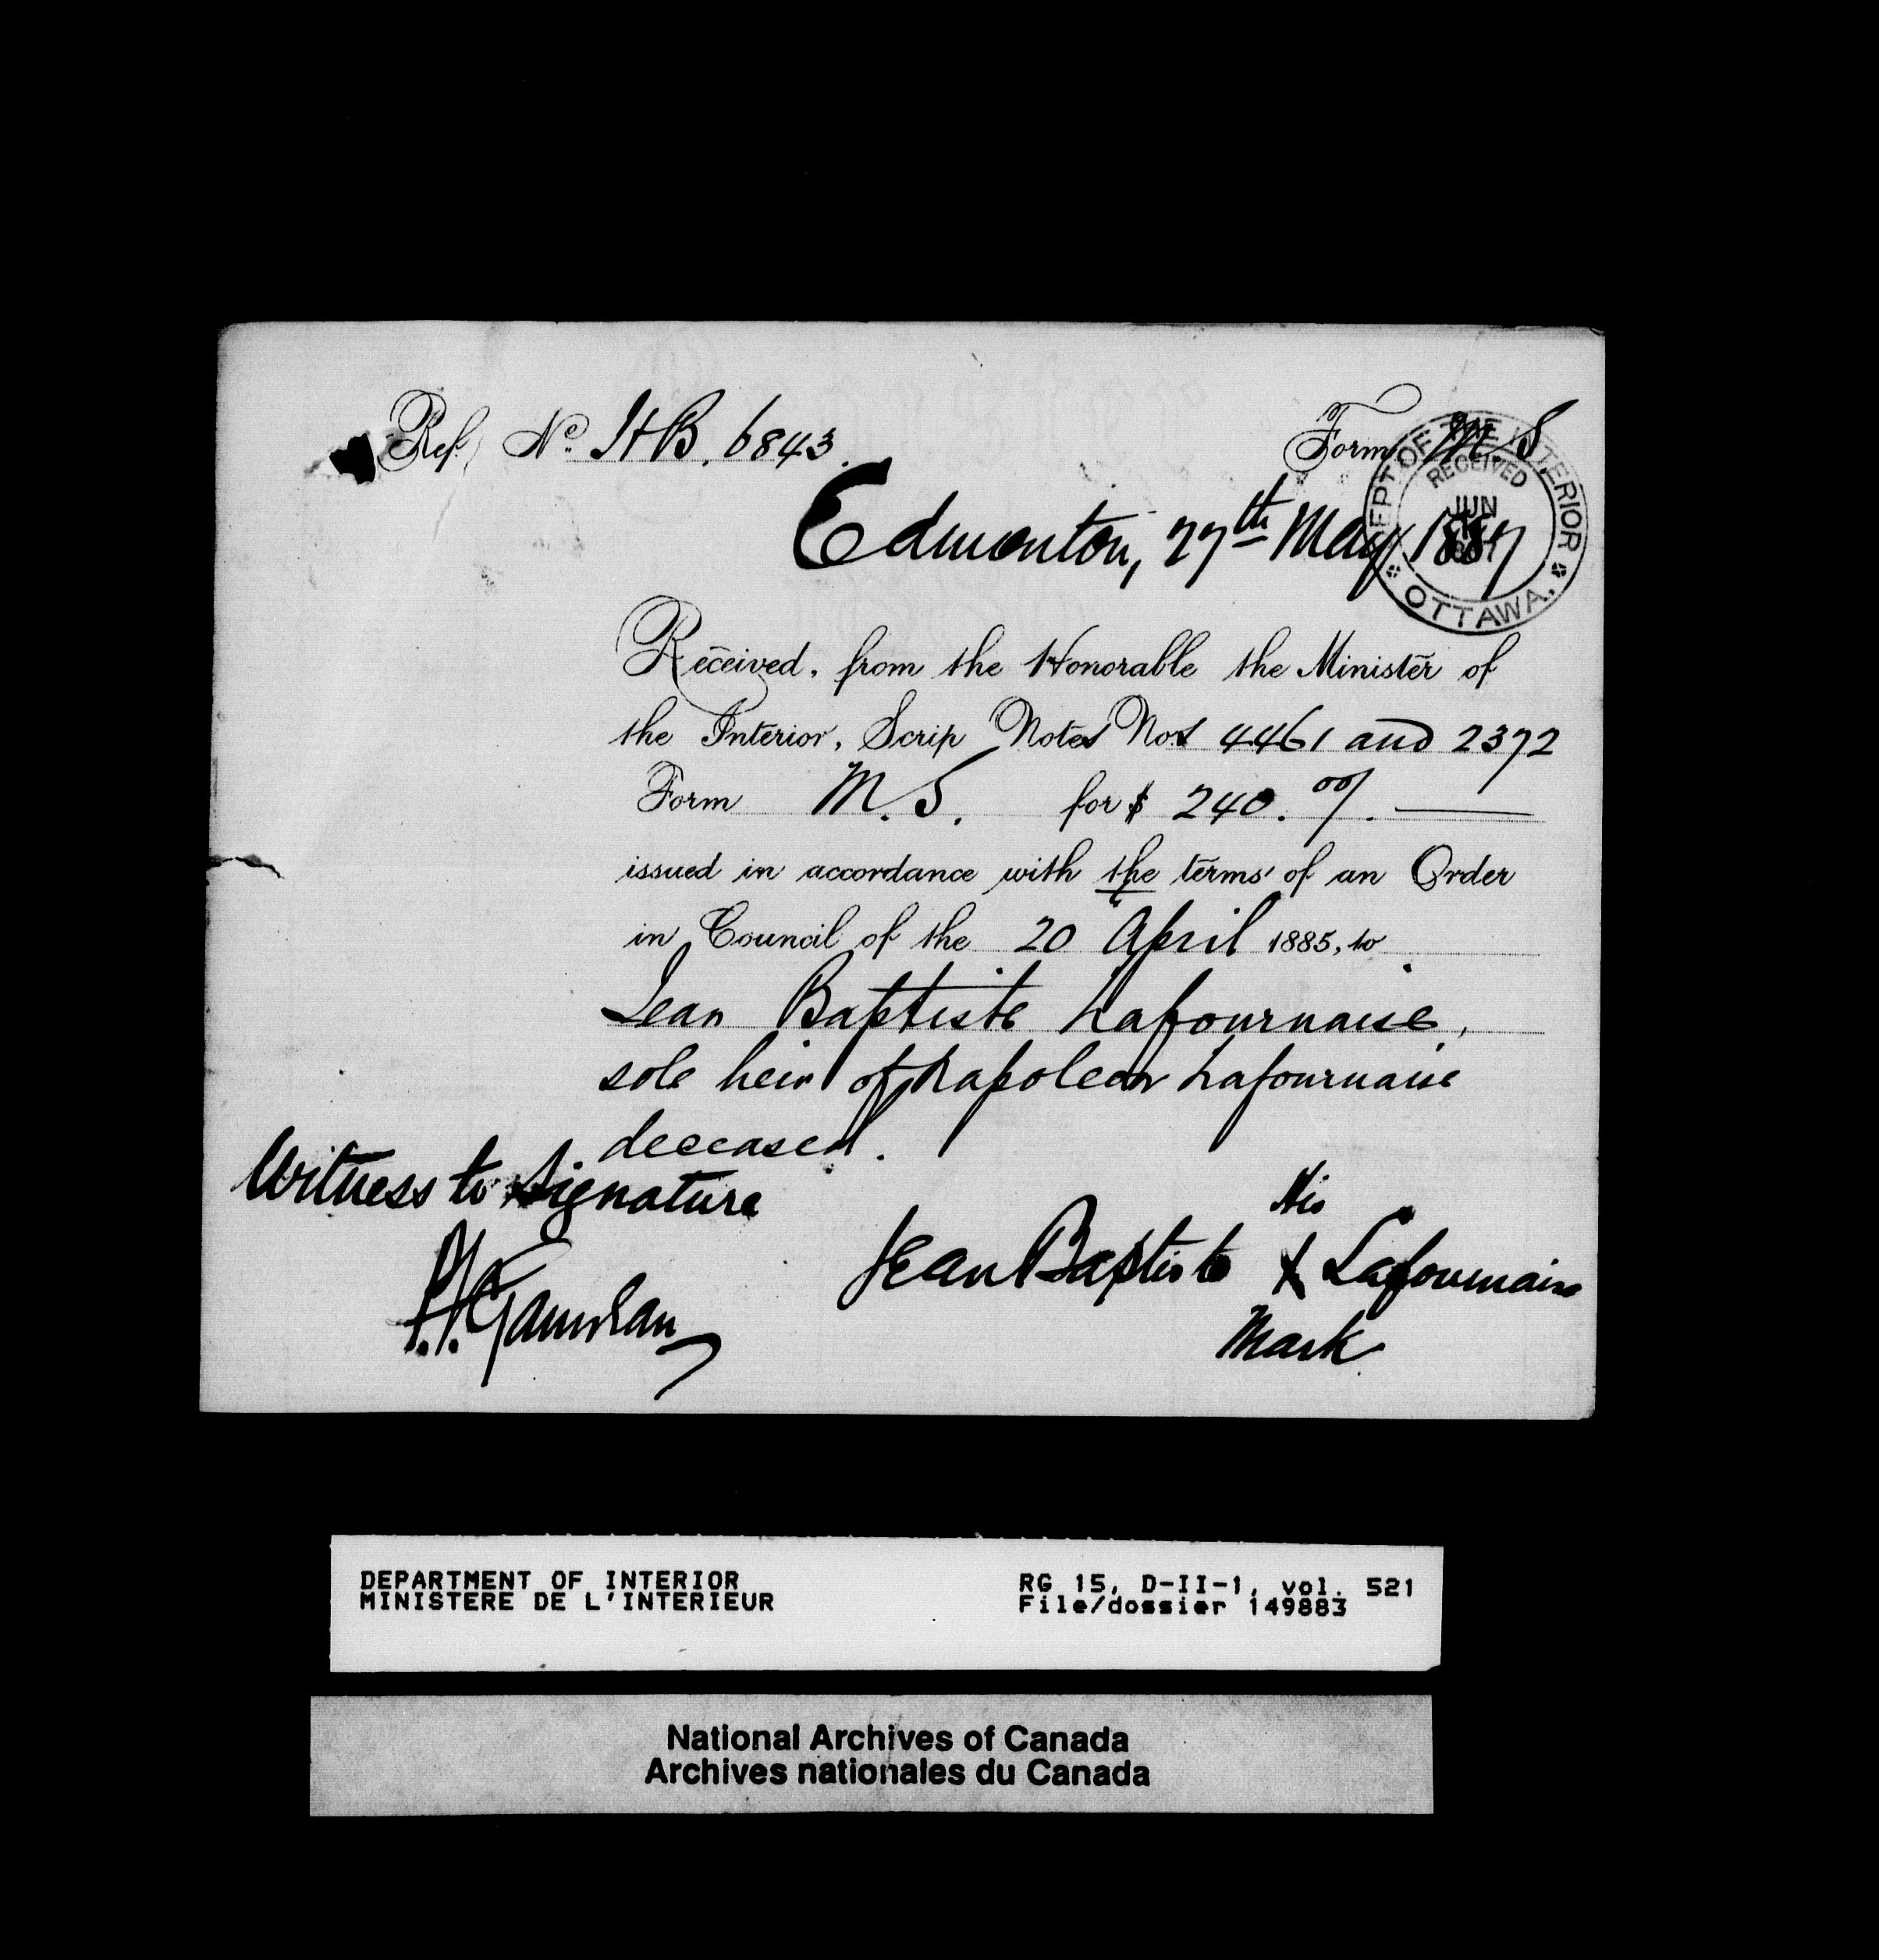 Ref. No. HB. 6843.
Form M.S.
DEPT. OF THE INTERIOR
RECEIVED
JUN
OTTAWA.
Edmonton, 27th May 1887
Received, from the Honorable the Minister of
the Interior, Scrip Notes Nos 4461 and 2372
Form M.S. for $ 240.00/.
issued in accordance with the terms of an Order
in Council of the 20 April 1885, to
Jean Baptiste Lafournaise,
sole heir of Napoleon Lafournaise
deceased.
Witness to Signature
His
Jean Baptiste X Lafournaise
Mark
DEPARTMENT OF INTERIOR
MINISTERE DE L'INTERIEUR
RG 15, D-II-1, vol. 521
File/dossier 149883
National Archives of Canada
Archives nationales du Canada